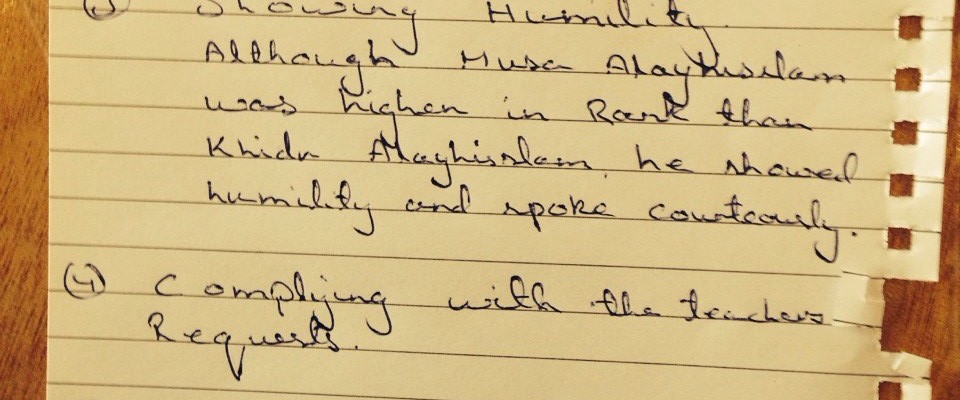 ③ Showing Humility.
Although Musa Alayhisalam
was higher in Rank than
Khidr Alayhisalam, he showed
humility and spoke courteously.
④ Complying with the teachers
Requests.